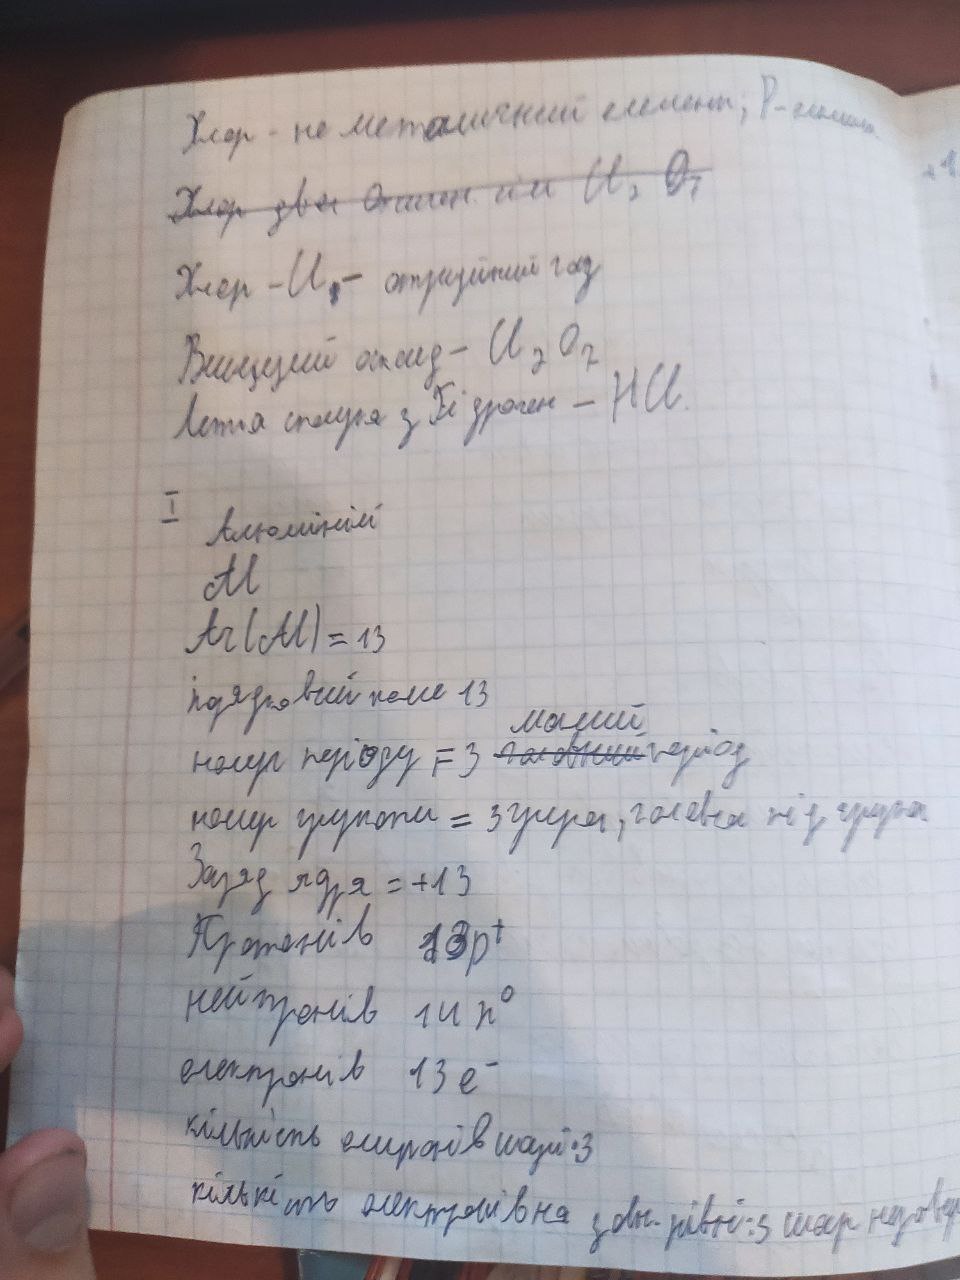 Хлор - не металічний елемент; P-елемен
Хлор два Оксиген сім Cl₂ O₇
Хлор - Cl₂ - отруйний газ
Вищий оксид - Cl₂O₇
Летка сполука з Гідроген - HCl.
I
Алюміній
Al
Ar(Al) = 13
порядковий номе 13
малий
номер періоду = 3 головний період
номер групи = 3 група, головна підгрупа
Заряд ядра = +13
Протонів 13p⁺
нейтронів 14 n⁰
електронів 13 e⁻
кількість енергоів шарі: 3
кількість електронів на зовн. рівні: 3 шар незавер